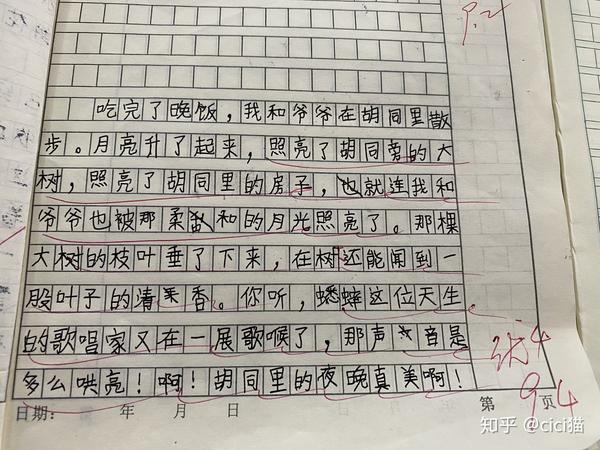 P.2
吃完了晚饭，我和爷爷在胡同里散
步。月亮升了起来，照亮了胡同旁的大
树，照亮了胡同里的房子，也就连我和
爷爷也被那柔和的月光照亮了。那棵
大树的枝叶垂了下来，在树还能闻到一
股叶子的清香。你听，蟋蟀这位天生
的歌唱家又在一展歌喉了，那声音是
多么哄亮！啊！胡同里的夜晚真美啊！
94
日期： 年 月 日 第 页
知乎 @cici猫